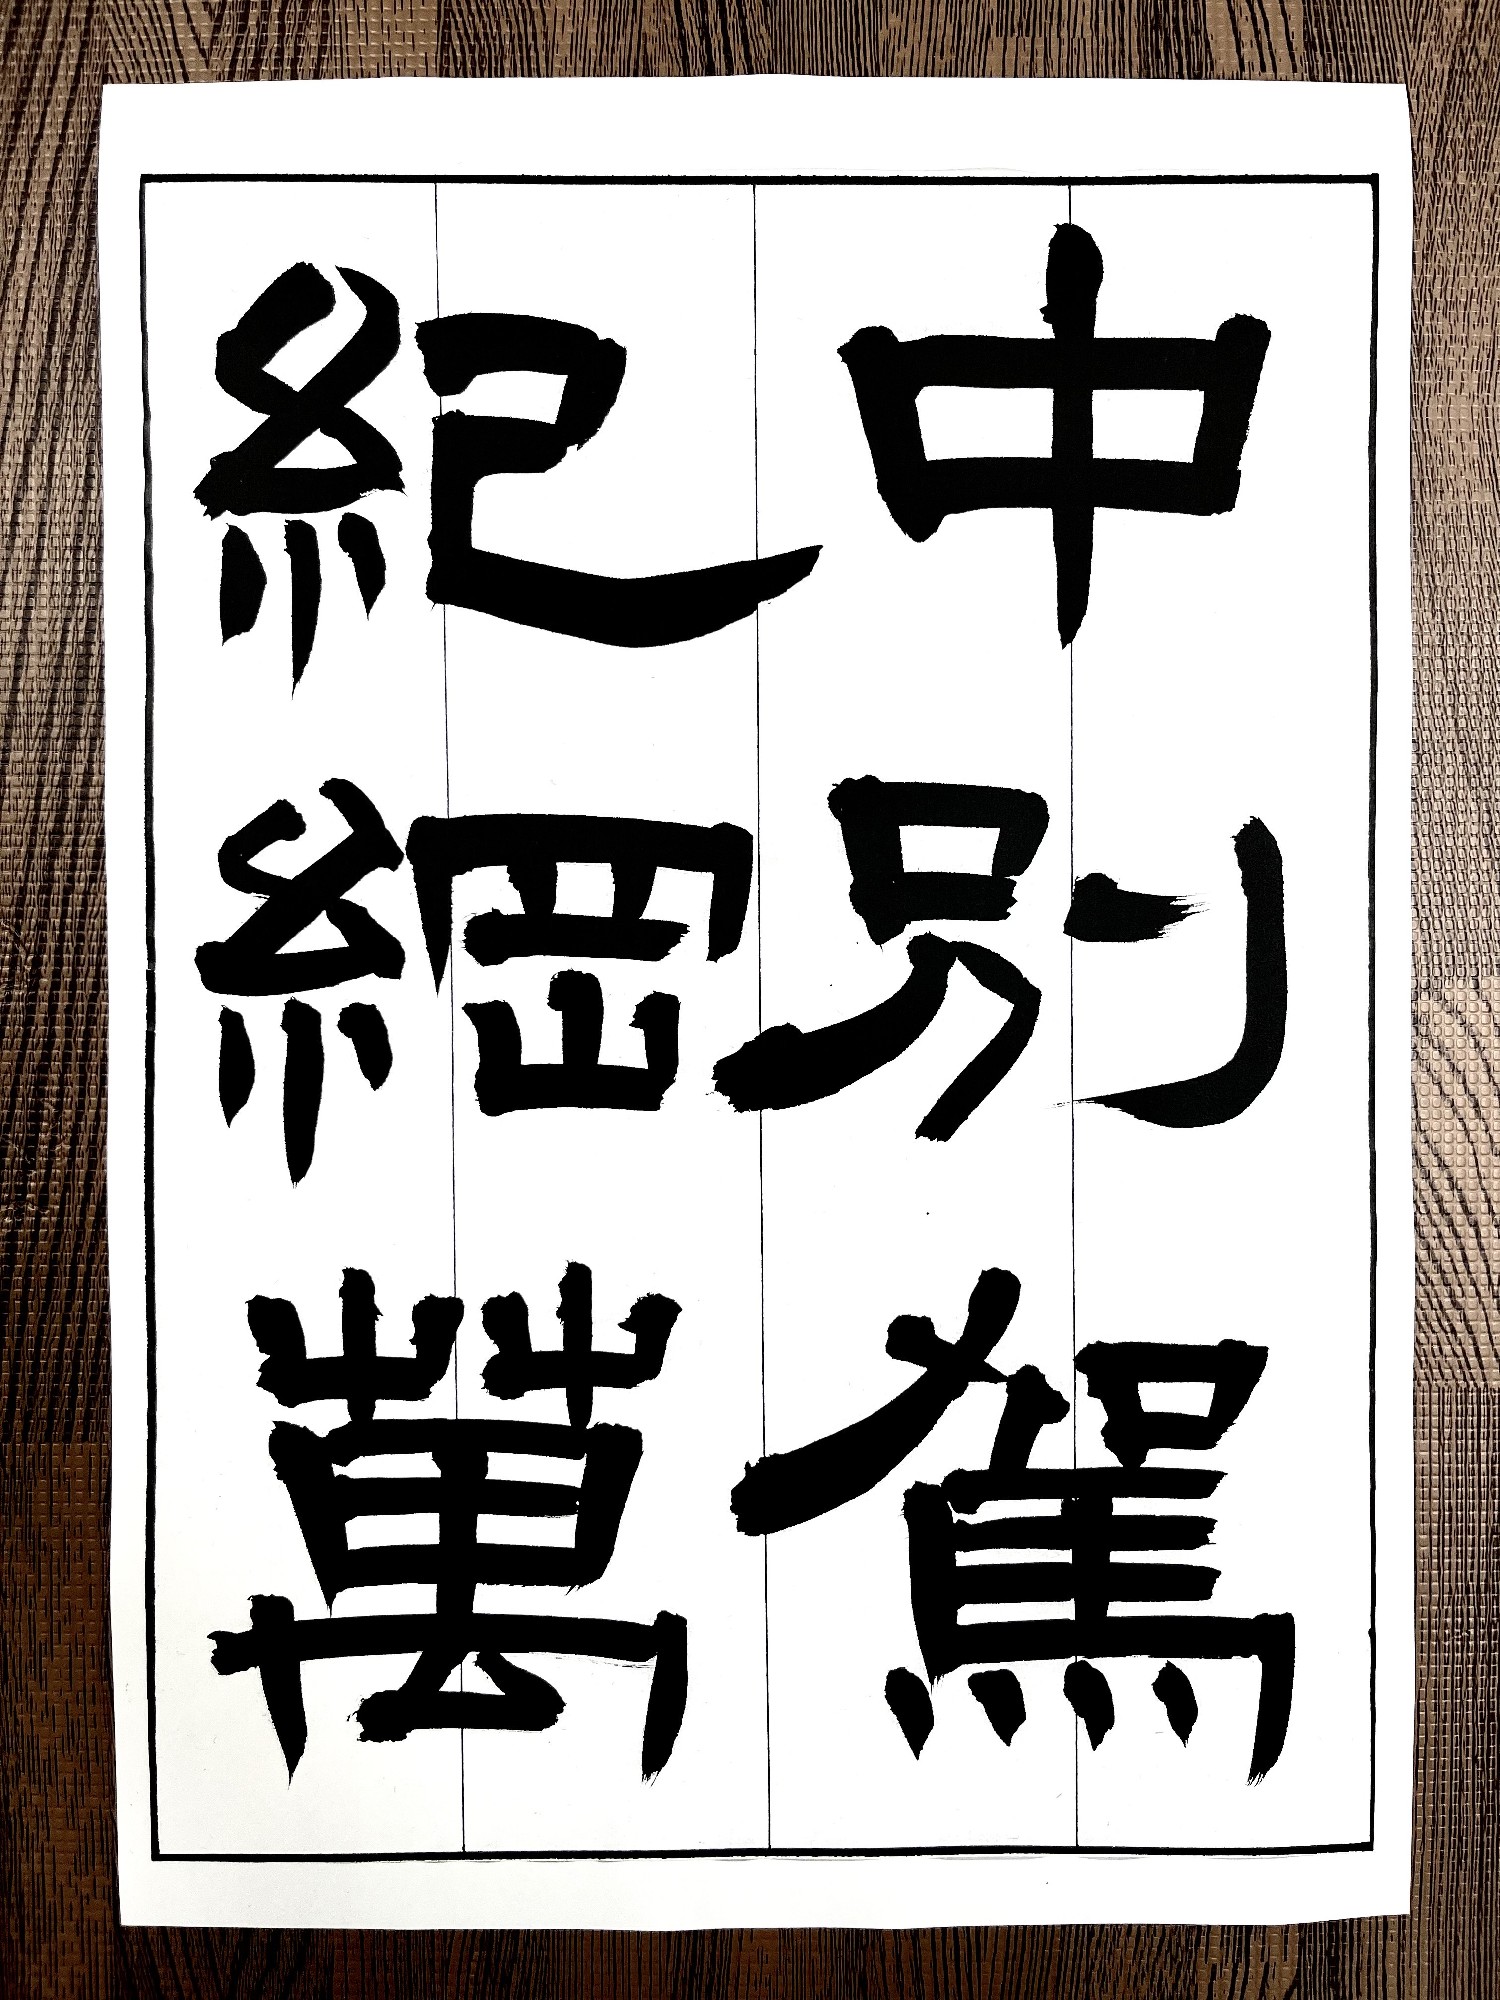 中別駕
紀綱萬